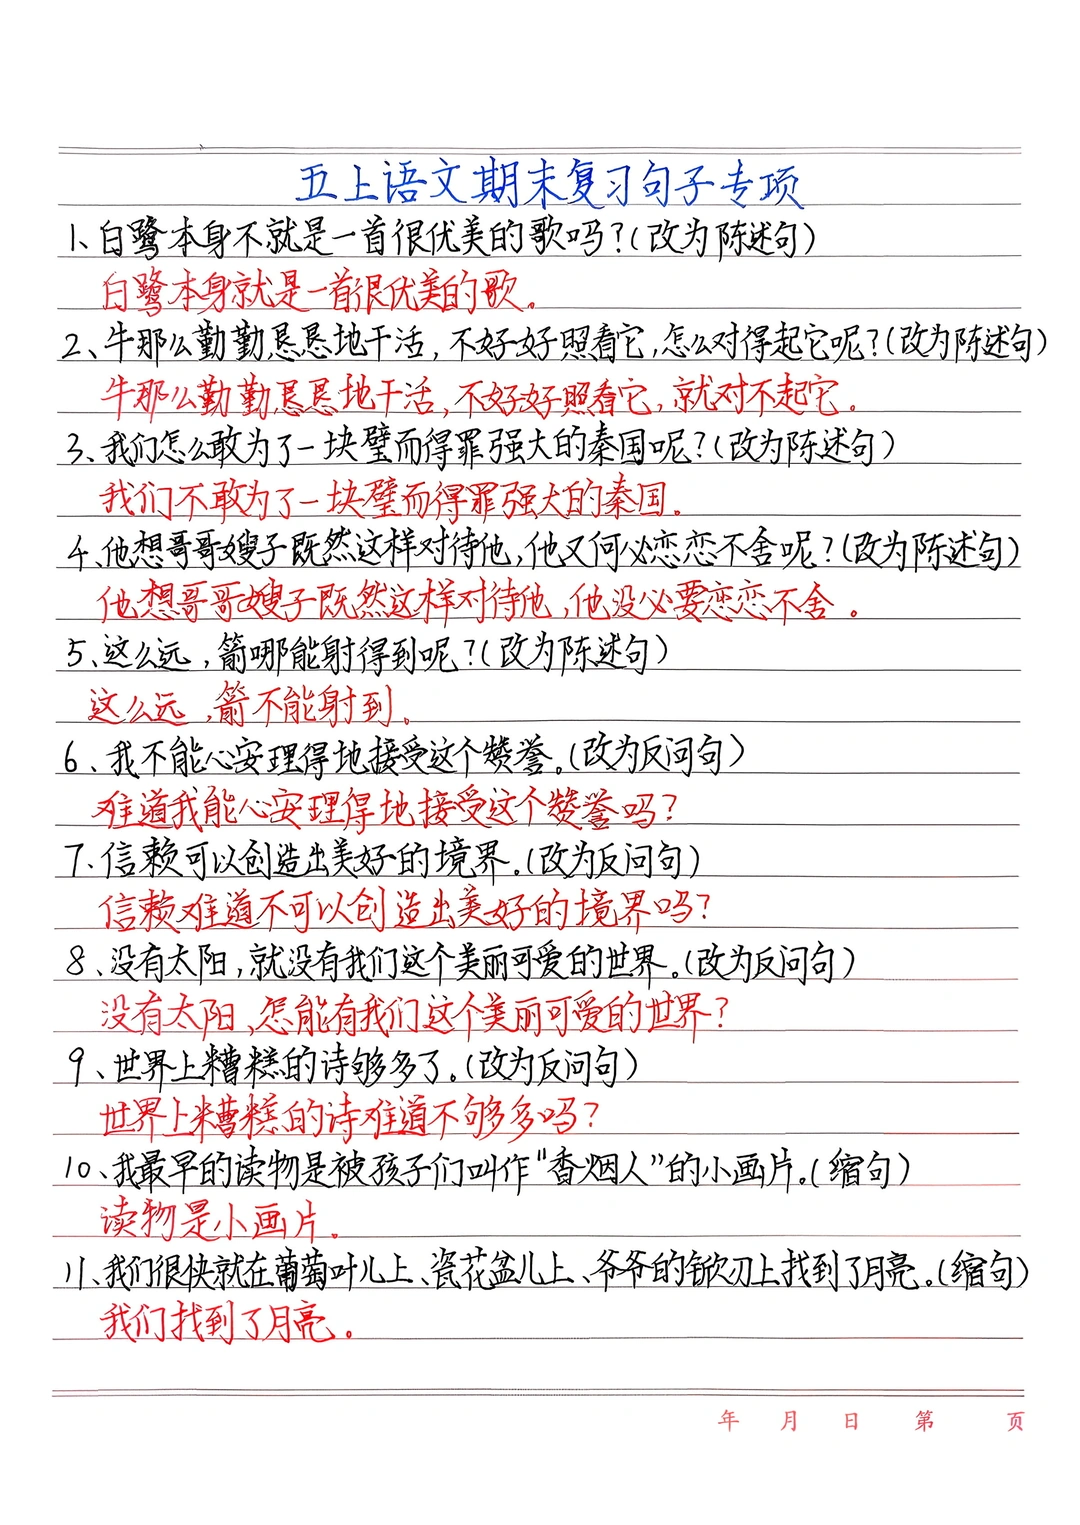 五上语文期末复习句子专项
1、白鹭本身不就是一首很优美的歌吗?(改为陈述句)
白鹭本身就是一首很优美的歌。
2、牛那么勤勤恳恳地干活,不好好照看它,怎么对得起它呢?(改为陈述句)
牛那么勤勤恳恳地干活,不好好照看它,就对不起它。
3、我们怎么敢为了一块璧而得罪强大的秦国呢?(改为陈述句)
我们不敢为了一块璧而得罪强大的秦国。
4、他想哥哥嫂子既然这样对待他,他又何必恋恋不舍呢?(改为陈述句)
他想哥哥嫂子既然这样对待他,他没必要恋恋不舍。
5、这么远,箭哪能射得到呢?(改为陈述句)
这么远,箭不能射到。
6、我不能心安理得地接受这个赞誉。(改为反问句)
难道我能心安理得地接受这个赞誉吗?
7、信赖可以创造出美好的境界。(改为反问句)
信赖难道不可以创造出美好的境界吗?
8、没有太阳,就没有我们这个美丽可爱的世界。(改为反问句)
没有太阳,怎能有我们这个美丽可爱的世界?
9、世界上糟糕的诗够多了。(改为反问句)
世界上糟糕的诗难道不够多吗?
10、我最早的读物是被孩子们叫作“香烟人”的小画片。(缩句)
读物是小画片。
11、我们很快就在葡萄叶儿上、瓷花盆儿上、爷爷的锨刃上找到了月亮。(缩句)
我们找到了月亮。
年 月 日 第 页